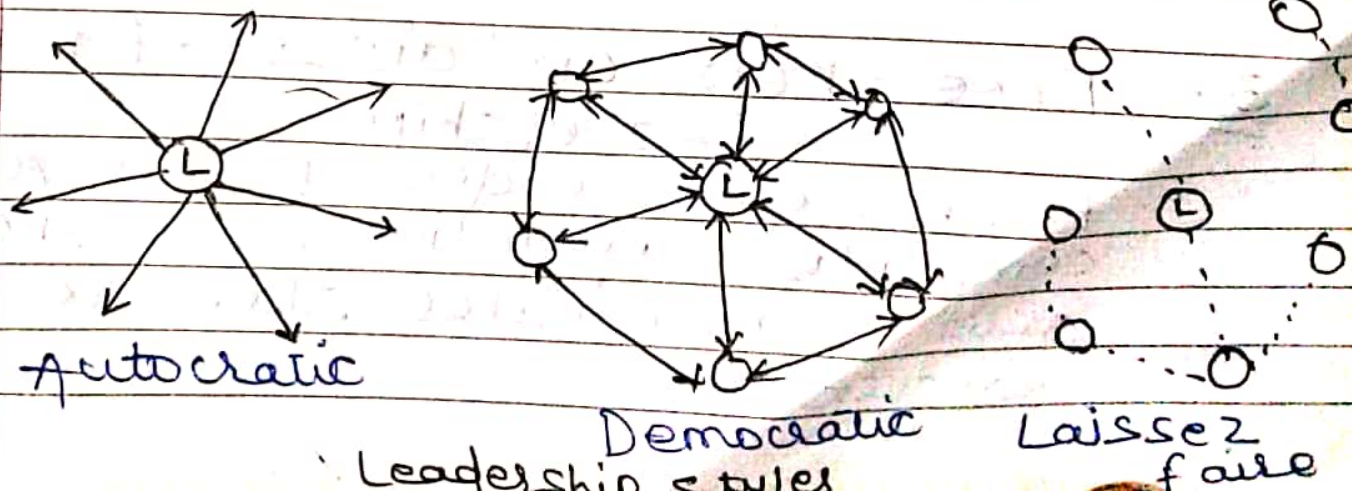 L
L
L
Autocratic
Democratic
Laissez
faire
Leadership styles